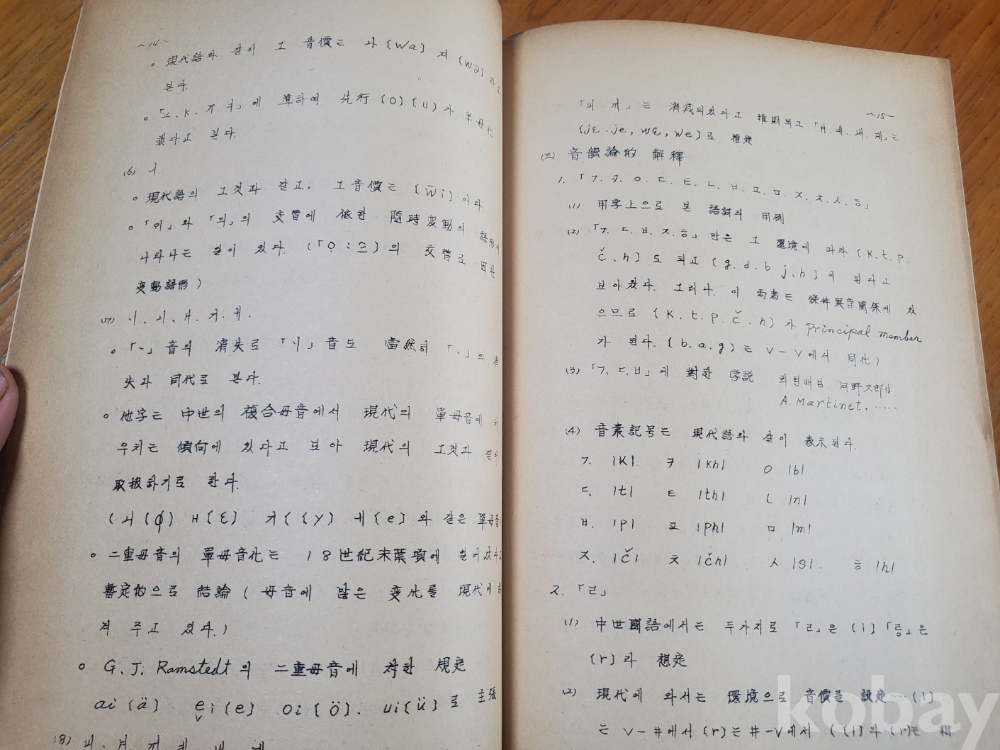 ~14~
。現代語와 같이 그 音價는 ㅘ(wa) ㅝ(wə)
본다.
에 準하여 先行(o)(u)가 半母音
겠다고 본다.
(6) ㅟ
。現代語의 그것과 같고, 그音價는 (wi)이라
의 交替에 依한 隨時変動의 語形이
나타나는 일이 있다. 의 交替로 因한
変動語形)
(7)
音의 消失로 音도 當然히 의 消
失과 同代로 본다.
。他字는 中世의 複合母音에서 現代의 單母音에
우치는 傾向에 있다고 보아 現代의 그것과 같이
取扱하기로 한다.
(ㅚ(ø) ㅐ(ɛ) ㅟ(y) ㅔ(e) 와 같은 單母音
。二重母音의 單母音化는 18世紀末葉頃에 일어났다고
暫定的으로 結論 (母音에 많은 変化를 現代에
켜 주고 있다.)
。G. J. Ramstedt의 二重母音에 対한 規定
ai (ä) ei (e) oi (ö). ui (ü)로 主張
(8)
~15~
는 消滅되었다고 推測되고 는
(jɛ. je, wɛ, we)로 推定
(三) 音韻論的 解釋
1. 「ㄱ.ㅋ.ㅇ.ㄷ.ㅌ.ㄴ.ㅂ.ㅍ.ㅁ.ㅈ.ㅊ.ㅅ.ㅎ」
(1) 用字上으로 본 語詞의 用例
(2) 「ㄱ.ㄷ.ㅂ.ㅈ.ㅎ」만은 그 環境에 따라 (k.t.p.
č.h)도 되고 (g.d.b j.h)가 된다고
보아왔다. 그러나 이 両者는 條件異音關係에 있
으므로 (k.t.p.č.h)가 principal member
가 된다. (b.d.g)는 V-V에서 同化)
(3) 「ㄱ.ㄷ.ㅂ」에 對한 学説 최현배님 河野六郎님
A. Martinet, .....
(4) 音素記号는 現代語와 같이 表示된다.
ㄱ. |k| ㅋ |kh| ㅇ
ㄷ. |t| ㅌ |th| ㄴ |n|
ㅂ. |p| ㅍ |ph| ㅁ |m|
ㅈ. |č| ㅊ |čh| ㅅ |s| ㅎ |h|
2. 「ㄹ」
(1) 中世國語에서는 두가지로 「ㄹ」은 (l) 「릉」은
(r)라 想定
(2) 現代에 와서는 環境으로 音價를 設定—(l)
는 V-#에서 (r)는 #-V에서 ((l)와 (r)로
kobay